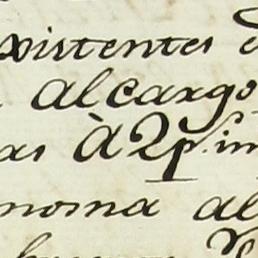 existentes
al cargo
as à 2p.s im
noma al